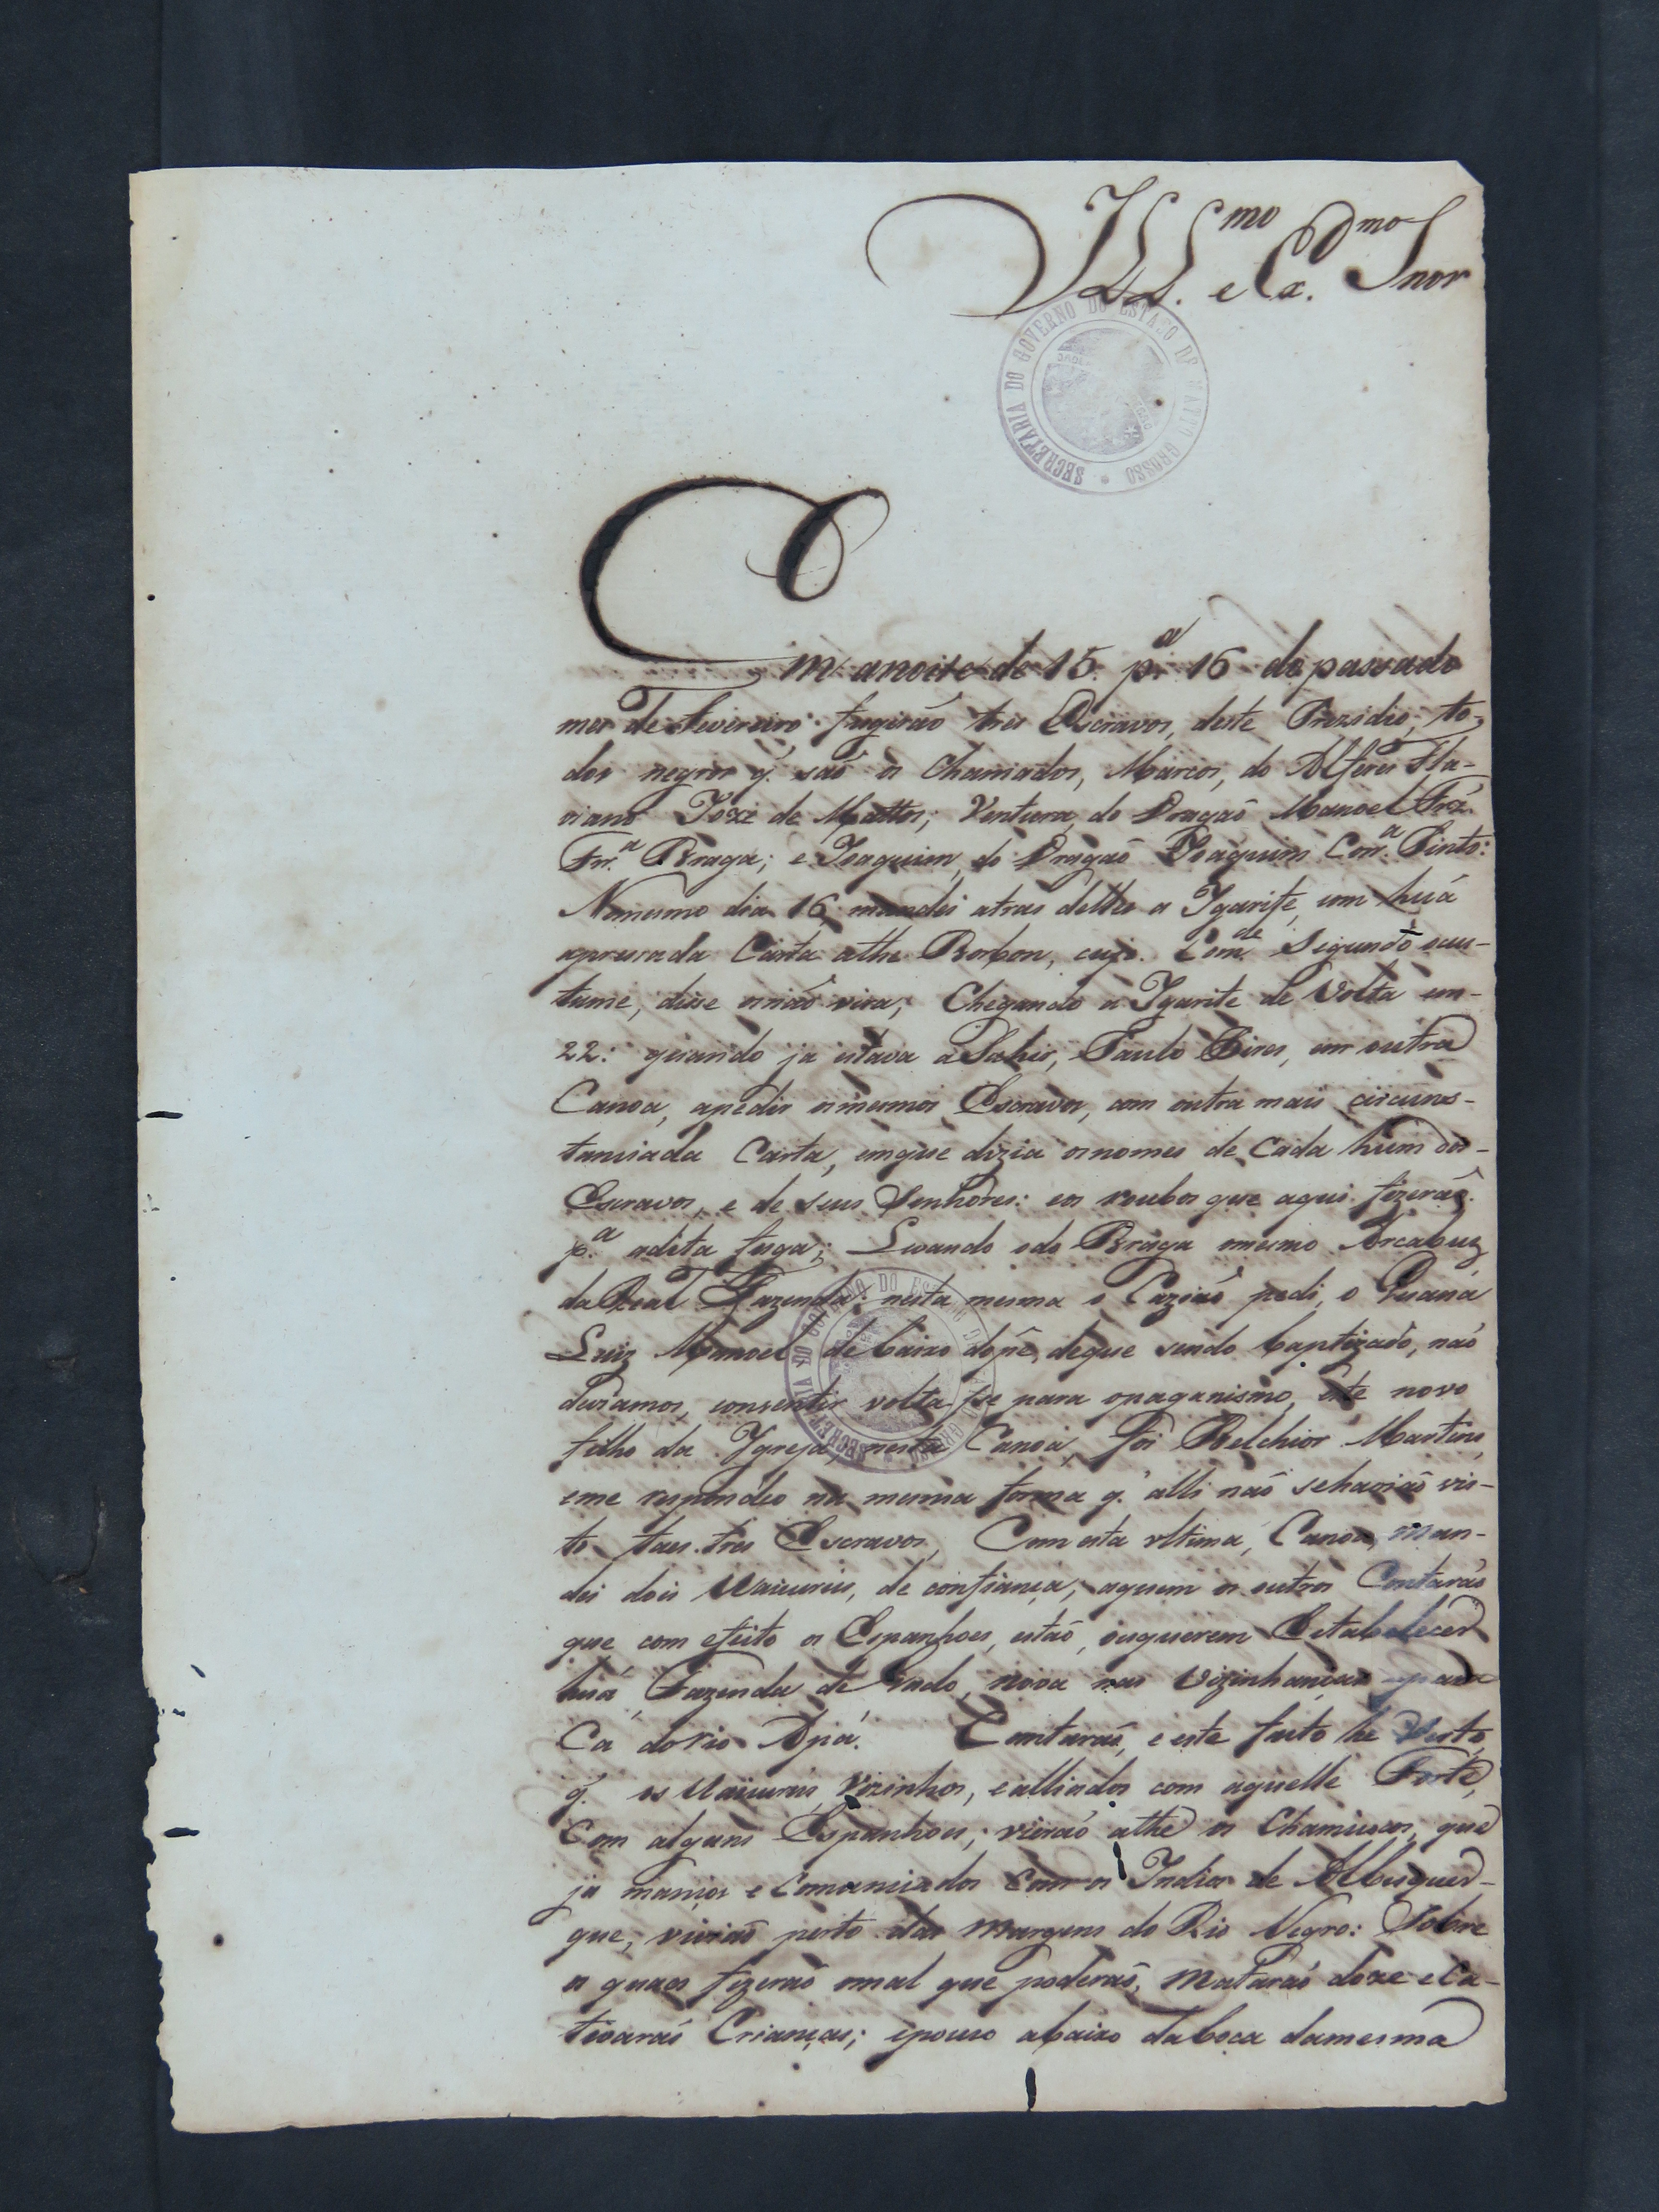 Ill.mo e Ex.mo Snor
SECRETARIA DO GOVERNO DO ESTADO DE MATTO GROSSO
Em anoite de 15. p.a 16 do passado
mes de Fevereiro fugirão tres Escravos, deste Prezidio, to-
dos negros q. são os Chamados, Marcos, do Alferes Fla-
viano Joze de Mattos; Ventura, do Dragaõ Manoel
Frr.a Braga; e Joaquim, do Dragaõ Joaquim Corr.a Pinto:
Nomesmo dia 16 mandei atras delles a Igarite, com huã
apressada Carta athe Borbon, cujo Com.de Segundo cus-
tume, disse osnaõ vira; Chegando a Igarite de Volta em
22: quando ja estava a Sahir, Paulo Pires, em outra
Canoa, apedir osmesmos Escravos, com outra mais circuns-
tanciada Carta, emque dizia osnomes de Cada hum dos
Escravos, e de seus Senhores: eos roubos que aqui fizeraõ
p.a adita fuga; Levando odo Braga omesmo Arcabuz
da Real Fazenda: nesta mesma o pedi, o Guaná
Luiz Manoel de baixo dopê, deque sendo baptizado, naõ
deviamos, consentir voltasse para opaganismo este novo
filho da Igreja, nesta Canoa, foi Belchior Martins,
eme respondeo na mesma forma q. alli naõ sehaviaõ vis-
to taes tres Escravos, Com esta ultima, Canoa, man-
dei dois Uaicurús, de confiança; aquem os outros Contaraõ
que com efeito os Espanhoes, estaõ, ouquerem Estabelecer
huã Fazenda de Gado, nova nas Vizinhanças para
Cá do rio Apá. Contaraõ, e este facto he Certo,
q. os Uaicurús, Vizinhos, ealliados com aquelle Forte,
Com alguns Espanhoes; vieraõ athe os Chamicocos, que
ja mansos e Comerciados Com os Indios de Albuquer-
que, viviaõ perto das Margens do Rio Negro: Sobre
os quaes fizeraõ omal que poderaõ, Mataraõ doze eCa-
tivaraõ Crianças; epouco abaixo da boca damesma
SECRETARIA DO GOVERNO DO ESTADO DE MATTO GROSSO